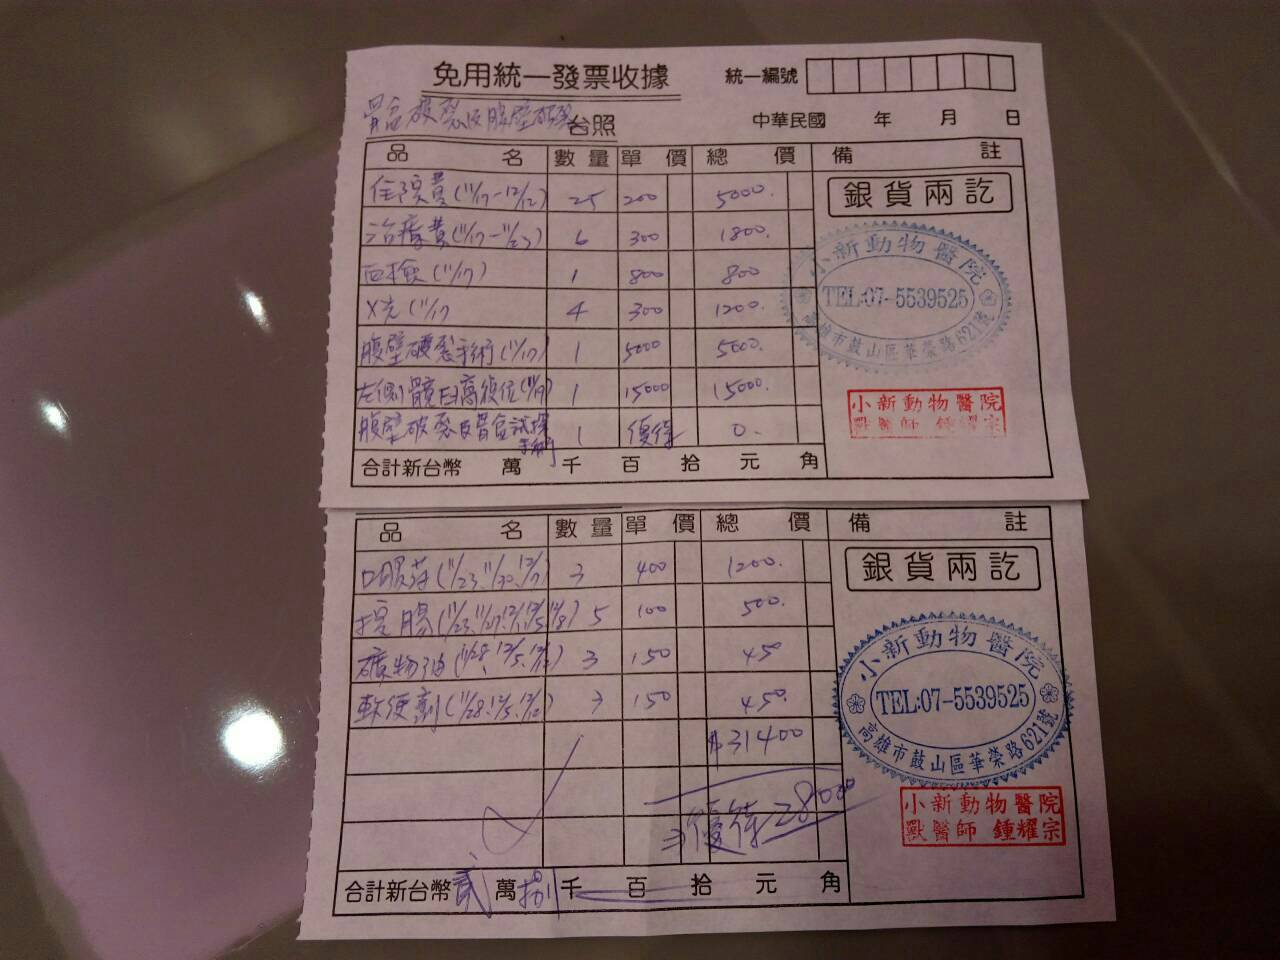 免用統一發票收據 統一編號
骨盆破裂及腹壁破裂 台照 中華民國 年 月 日
品 名 數量 單 價 總 價 備 註
住院費(11/17-12/12) 25 200 5000. 銀貨兩訖
治療費(11/17-11/23) 6 300 1800. 小新動物醫院
血檢(11/17) 1 800 800 TEL:07-5539525
X光(11/17 4 300 1200. 高雄市鼓山區華榮路621號
腹壁破裂手術(11/17) 1 5000 5000.
左側髖臼離復位(11/19) 1 15000 15000. 小新動物醫院
腹壁破裂及骨盆試探手術 1 優待 0. 獸醫師 鍾耀宗
合計新台幣 萬 千 百 拾 元 角
品 名 數量 單 價 總 價 備 註
口服藥(11/23.11/30.12/7) 3 400 1200. 銀貨兩訖
浣腸 5 100 500.
礦物油(11/28.12/5.12/12) 3 150 45 小新動物醫院
軟便劑(11/28.12/5.12/12) 3 150 450. TEL:07-5539525
$31400 高雄市鼓山區華榮路621號
⇒優待28000 小新動物醫院
獸醫師 鍾耀宗
合計新台幣貳萬捌千 百 拾 元 角